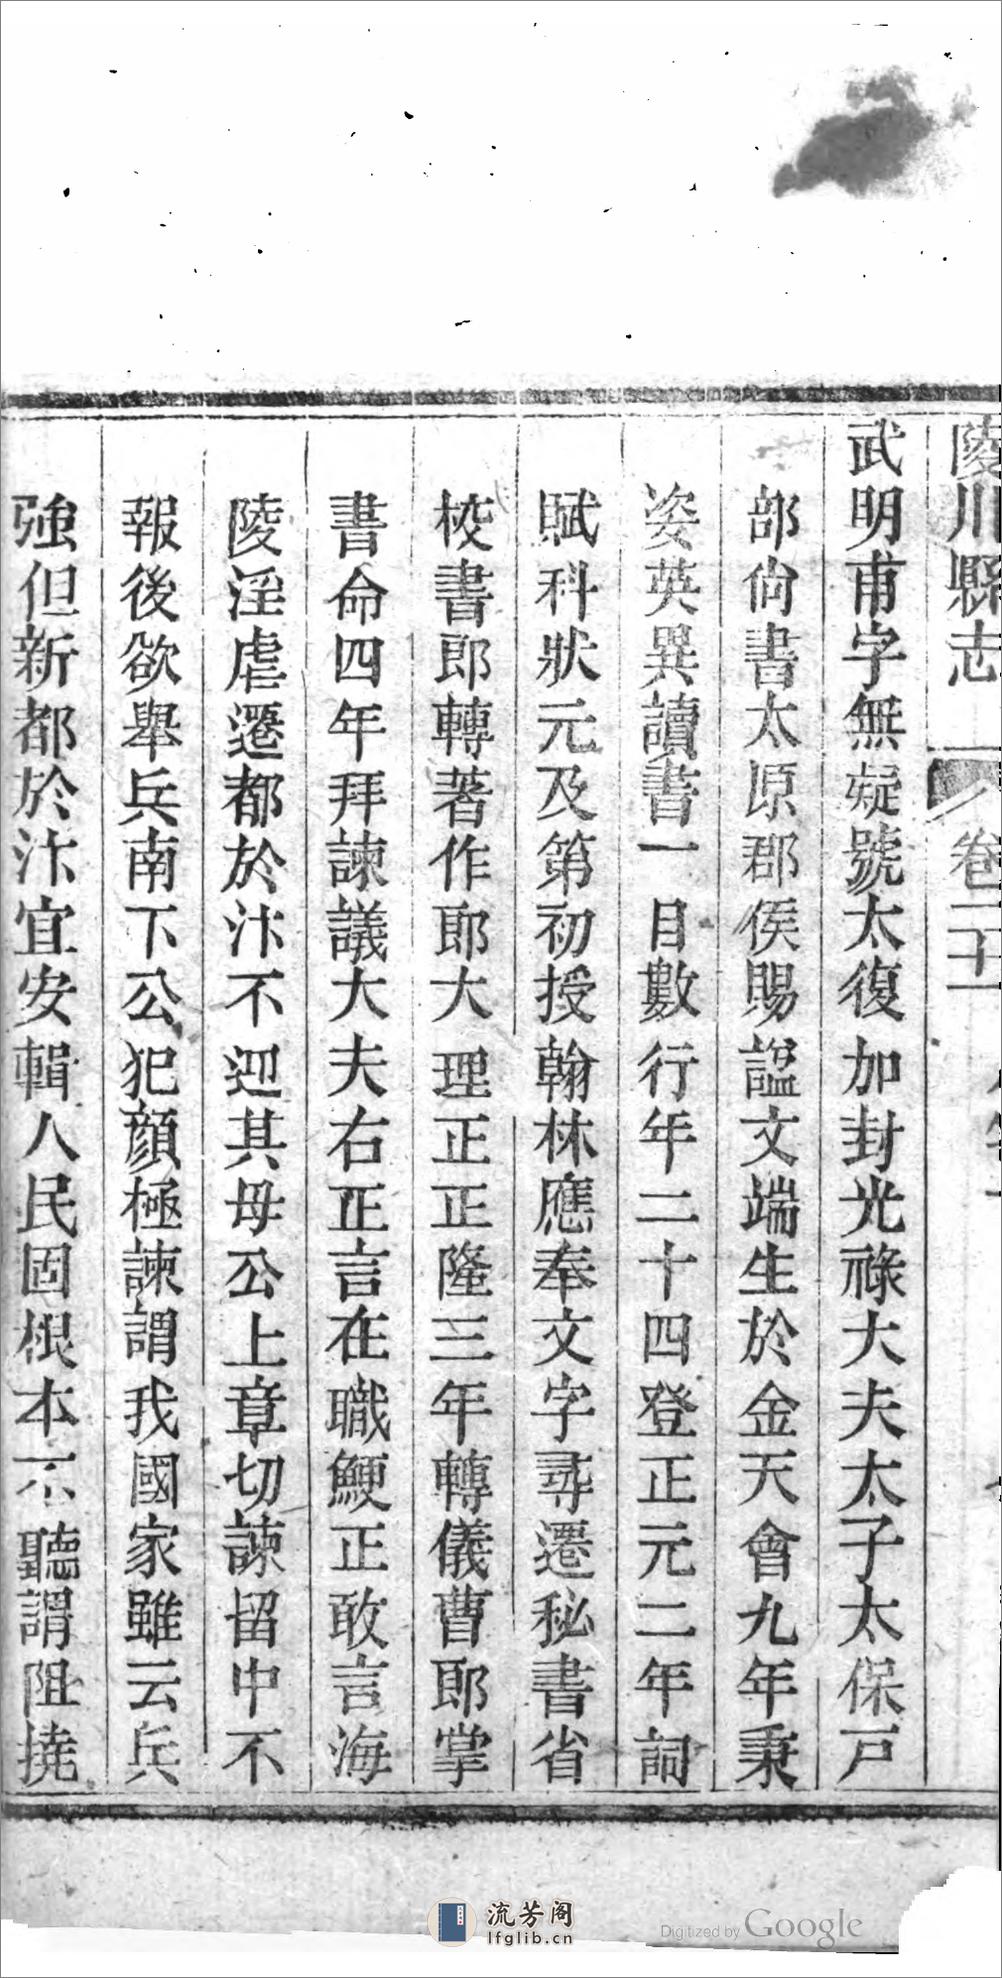 陵川縣志
卷二十一
武明甫字無疑號太復加封光祿大夫太子太保戸
部尙書太原郡侯賜諡文端生於金天會九年秉
姿英異讀書一目數行年二十四登正元二年詞
賦科狀元及第初授翰林應奉文字尋遷秘書省
校書郎轉著作郎大理正正隆三年轉儀曹郎掌
書命四年拜諫議大夫右正言在職鯁正敢言海
陵淫虐遷都於汴不迎其母公上章切諫留中不
報後欲舉兵南下公犯顔極諫謂我國家雖云兵
強但新都於汴宜安輯人民固根本不聽謂阻撓
流芳阁
lfglib.cn
Digitized by Google